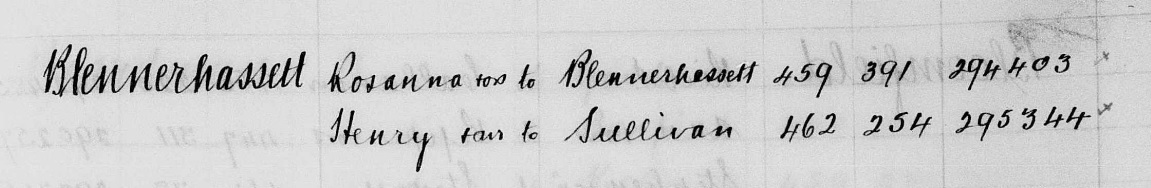 Blennerhassett Rosanna to Blennerhassett 459 391 294403 x
Henry to Sullivan 462 254 295344 x